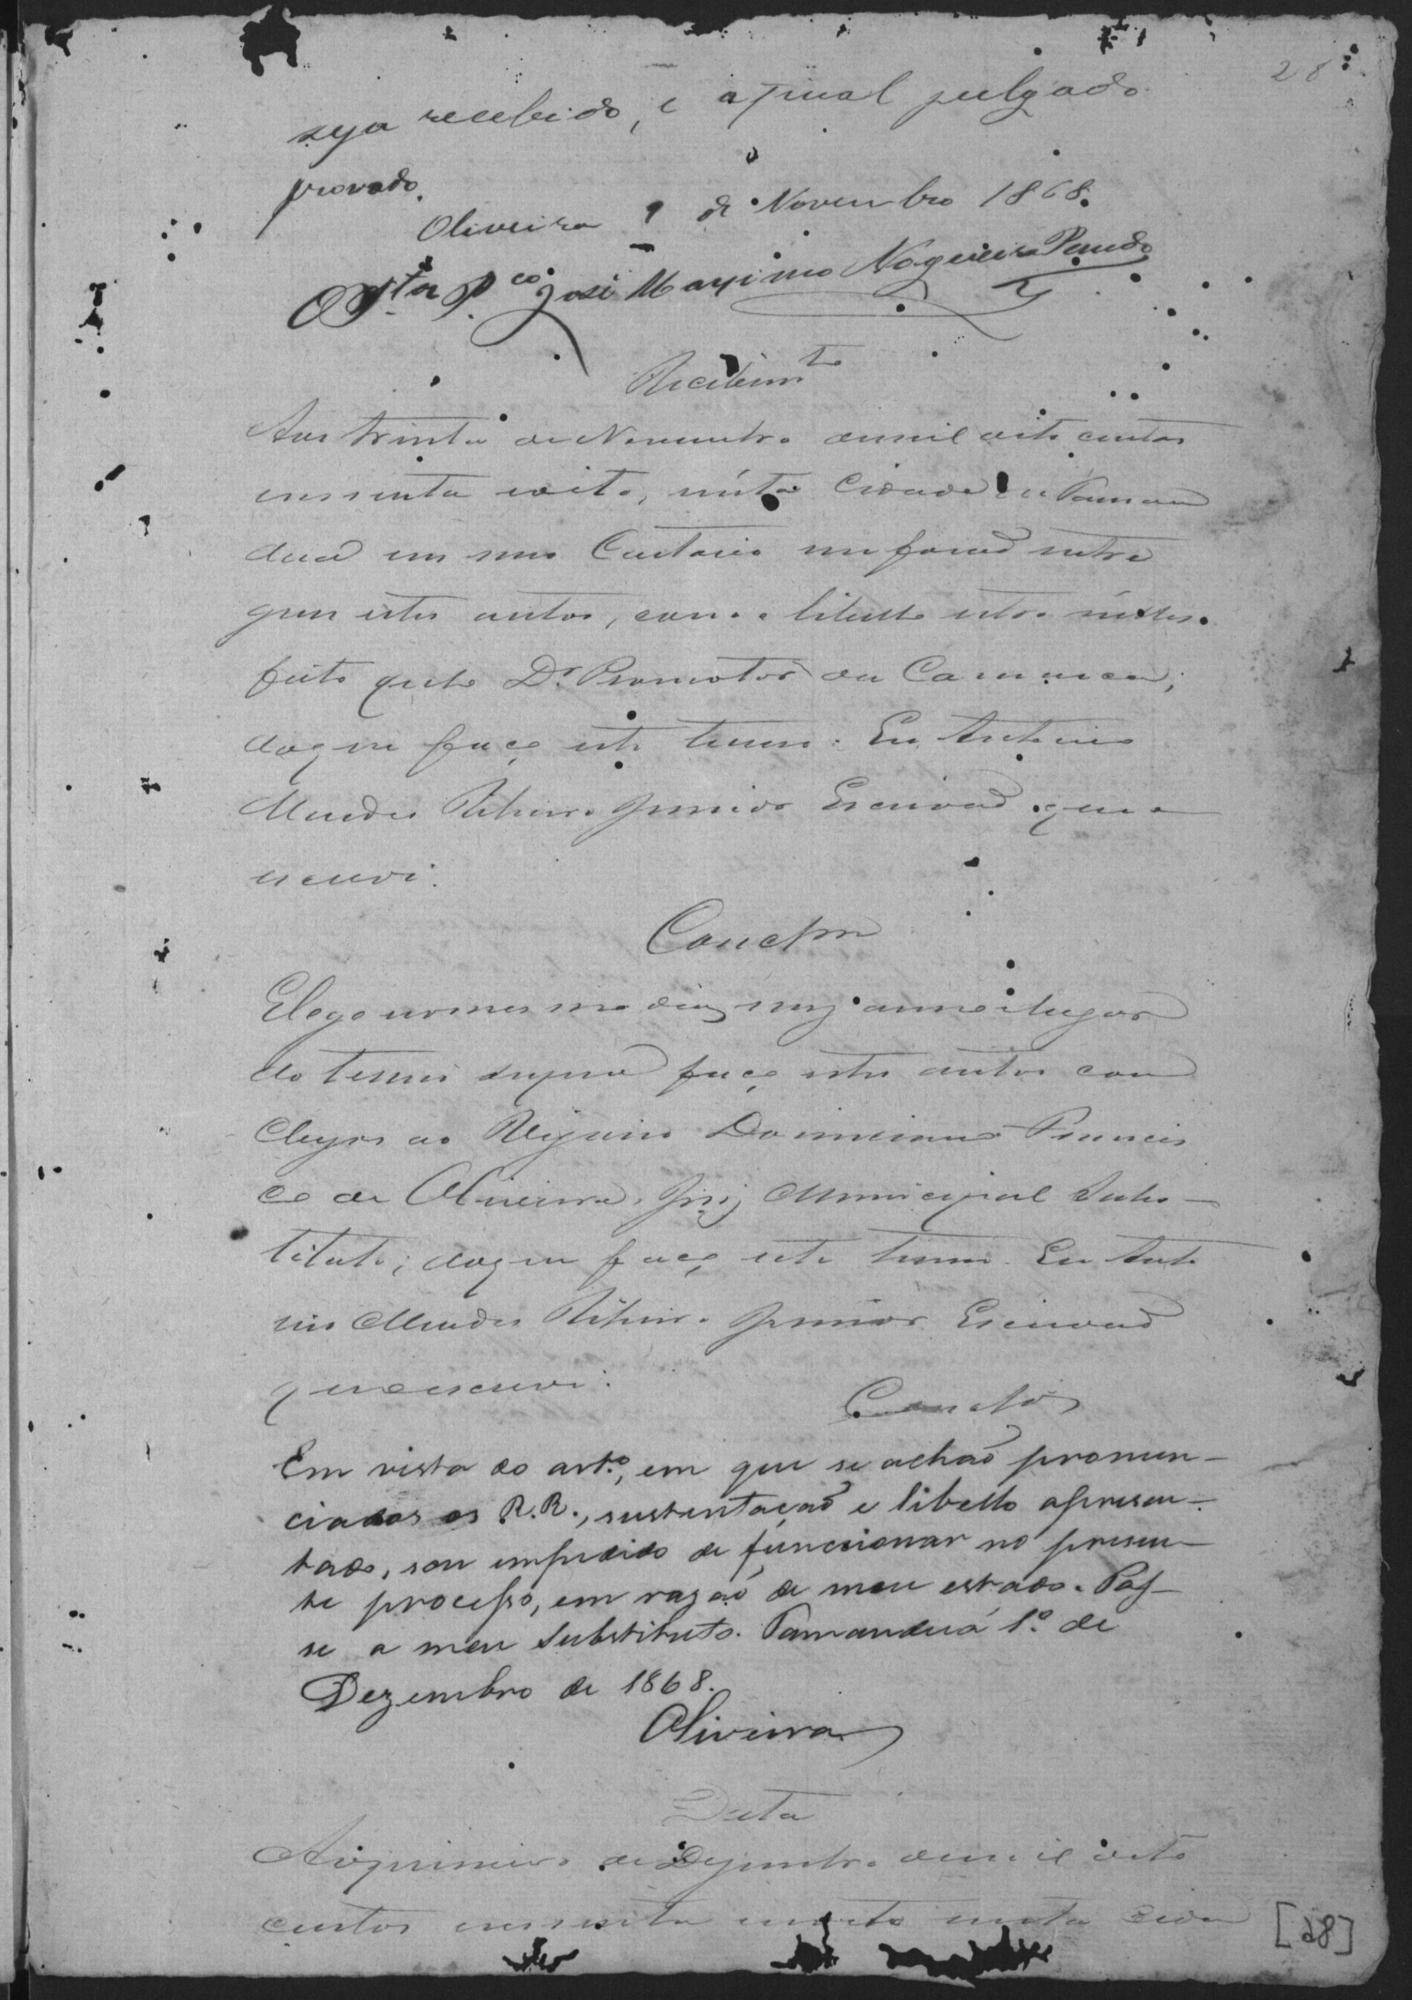 28
seja recebido, e afinal julgado
provado.
Oliveira 9 de Novembro 1868.
José Maximo Nogueira Penido
Recebim.to
Aos trinta de Novembro de mil oito centos
e sessenta e oito, nésta Cidade de Taman
duá em meu Cartorio me forão entre
gues estes autos, com o libello
feito pelo D.r Promotor da Comarca;
do que faço este termo. Eu Antonio
Mendes Ribeiro Junior Escrivão que o
escrevi.
Concl.m
E logo no mesmo dia, mez anno e lugar
do termo supra faço estes autos con
clusos ao Domiciano Francis
co de Oliveira, Juiz Municipal Subs-
tituto; do que faço este termo. Eu Anto
nio Mendes Ribeiro Junior Escrivão
que o escrevi.
Conclos
Em vista do art.o, em que se achão pronun-
ciados os R.R., sustentação e libello apresen-
tado, sou impedido de funccionar no presen-
te processo, em razão de meu estado. Pas-
se a meu substituto. Tamanduá 1.o de
Dezembro de 1868.
Oliveira
Data
Ao primeiro de Dezembro de mil oito
centos e sessenta e oito nesta cida
[28]